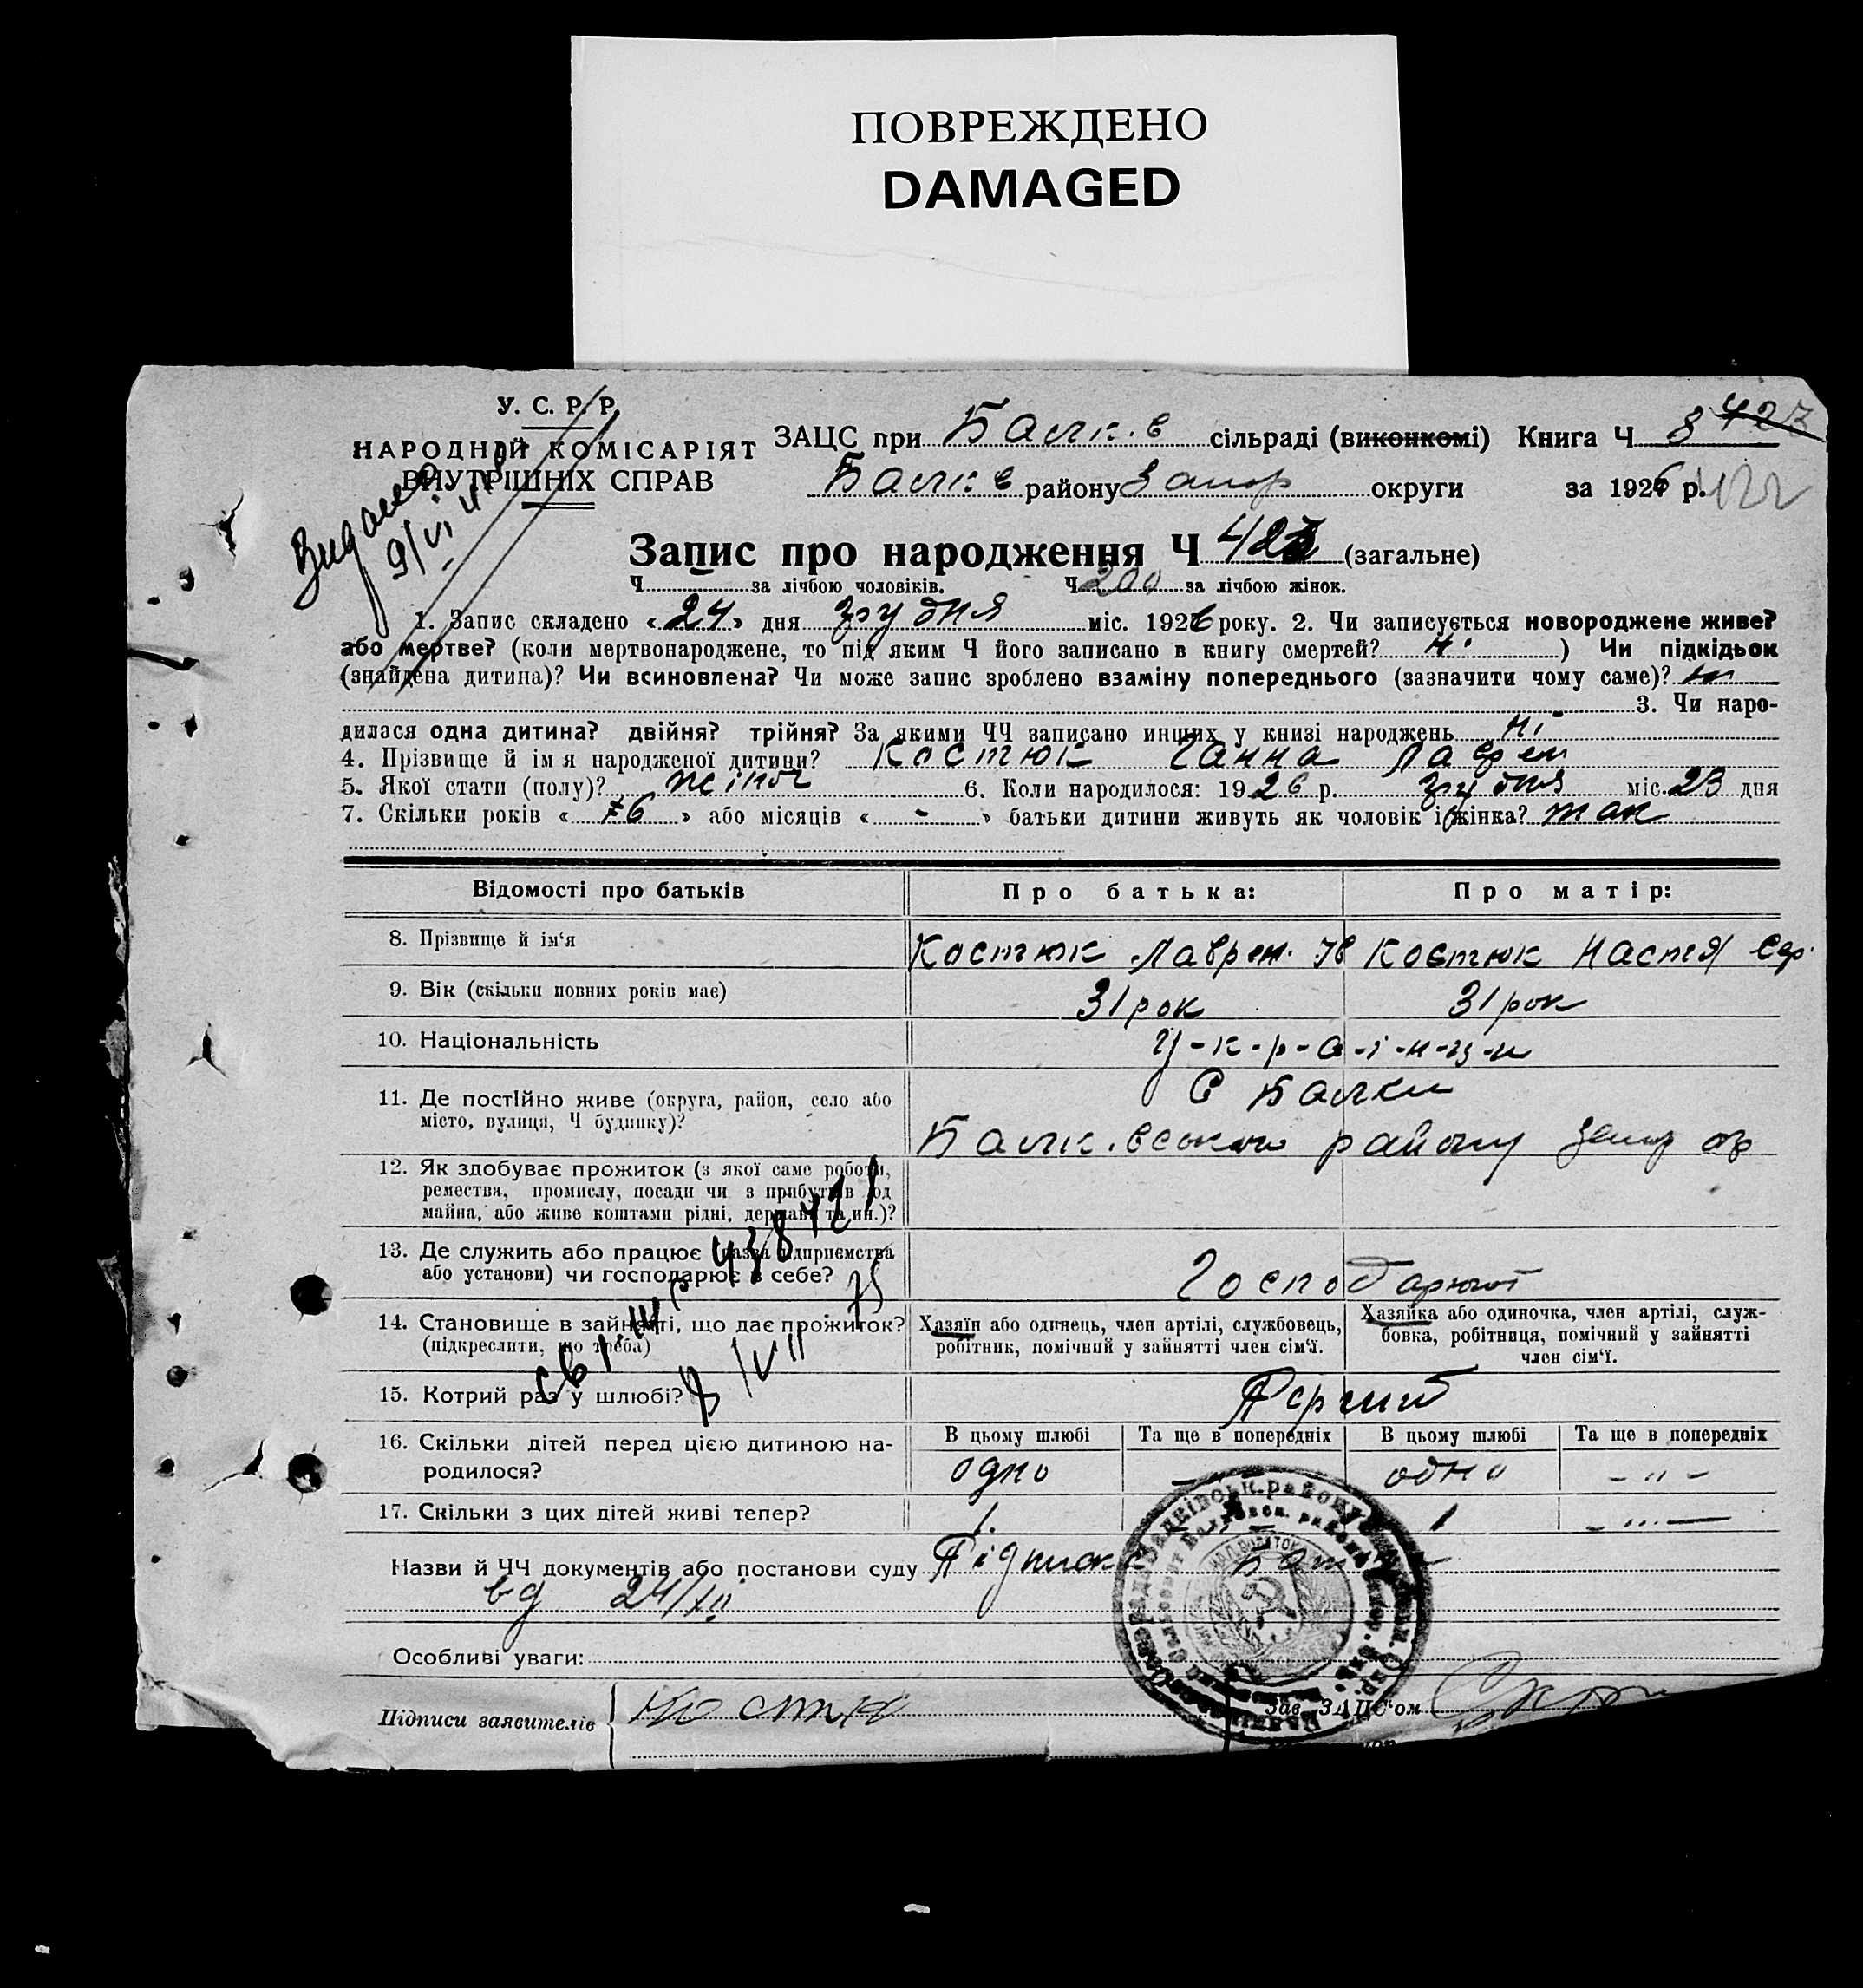 ПОВРЕЖДЕНО
DAMAGED
У. С. Р. Р.
НАРОДНІЙ КОМІСАРІЯТ
ВНУТРІШНІХ СПРАВ
427
ЗАЦС при Балк.в сільраді (виконкомі) Книга Ч 8
Балк в району Запор округи за 1926 р. 422
Видано
9/VI
Запис про народження Ч 422 (загальне)
Ч – за лічбою чоловіків. Ч 200 за лічбою жінок.
1. Запис складено «24» дня грудня міс. 1926 року. 2. Чи записується новороджене живе?
або мертве? (коли мертвонароджене, то під яким Ч його записано в книгу смертей? ) Чи підкідьок
(знайдена дитина)? Чи всиновлена? Чи може запис зроблено взаміну попереднього (зазначити чому саме)?
3. Чи наро-
дилася одна дитина? двійня? трійня? За якими ЧЧ записано инших у книзі народжень ні
4. Прізвище й ім я народженої дитини? Костюк Ганна Лаврен
5. Якої стати (полу)? жіноч 6. Коли народилося: 1926 р. грудня міс. 23 дня
7. Скільки років « » або місяців « - » батьки дитини живуть як чоловік і жінка? так
Відомості про батьків Про батька: Про матір:
8. Прізвище й ім'я Костюк Лаврен. Ів Костюк Настя Єф.
9. Вік (скільки повних років має) 31 рок 31 рок
10. Національність У-к-р-а-ї-н-ц-и
11. Де постійно живе (округа, район, село або
місто, вулиця, Ч будинку)?
С Балки
Балк.вського району Запор окр
12. Як здобуває прожиток (з якої саме роботи,
ремества, промислу, посади чи з прибутків од
майна, або живе коштами рідні, держави та ин.)?
13. Де служить або працює (назва підприємства
або установи) чи господарює в себе?
Господарюют
14. Становище в зайнятті, що дає прожиток?
(підкреслити, що треба)
Хазяїн або одинець, член артілі, службовець,
робітник, помічний у зайнятті член сім'ї.
Хазяйка або одиночка, член артілі, служ-
бовка, робітниця, помічний у зайнятті
член сім'ї.
15. Котрий раз у шлюбі? Перший
16. Скільки дітей перед цією дитиною на-
родилося?
В цьому шлюбі Та ще в попередніх В цьому шлюбі Та ще в попередніх
одно одно - " -
17. Скільки з цих дітей живі тепер? 1. 1
Назви й ЧЧ документів або постанови суду
від 24/XII
Особливі уваги:
Підписи заявителів Костюк Зав. ЗАЦС'ом